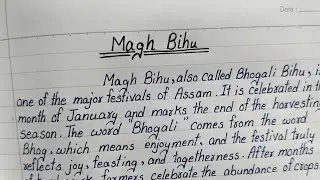 Date:
Magh Bihu
Magh Bihu, also called Bhogali Bihu, is
one of the major festivals of Assam. It is celebrated in the
month of January and marks the end of the harvesting
season. The word "Bhogali" comes from the word
Bhog, which means enjoyment, and the festival truly
reflects joy, feasting, and togetherness. After months
farmers celebrate the abundance of crops